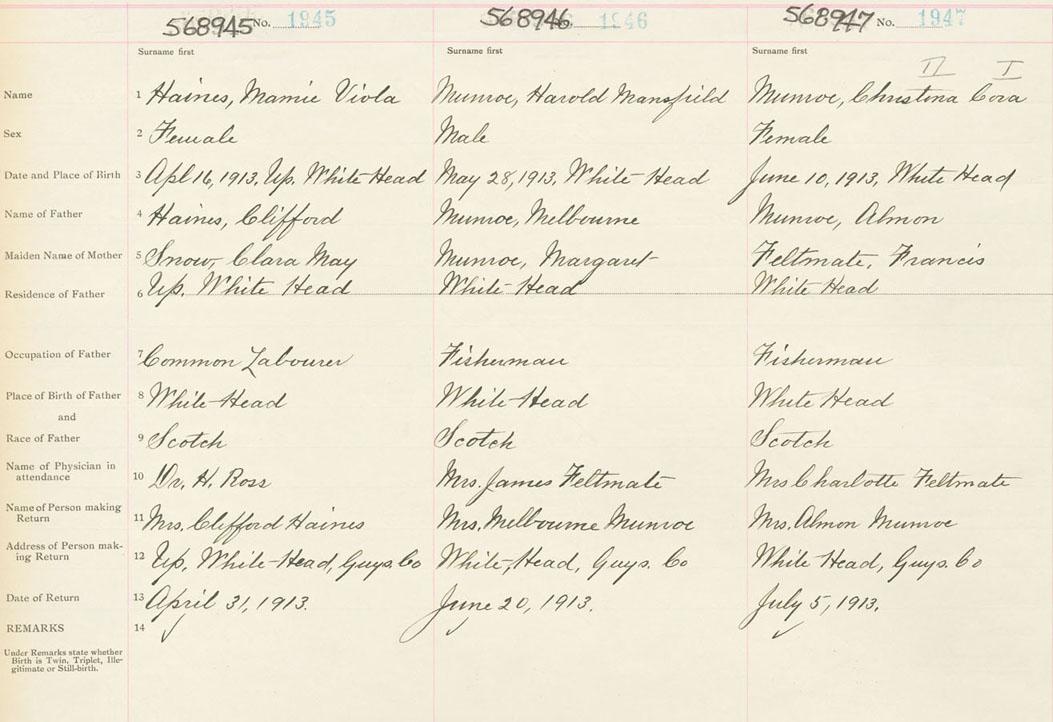 568945 No. 1945 568946 No. 1946 568947 No. 1947
Surname first Surname first Surname first
II I
Name 1 Haines, Mamie Viola Munroe, Harold Mansfield Munroe, Christina Cora
Sex 2 Female Male Female
Date and Place of Birth 3 Apl 16, 1913. Up. White Head May 28, 1913. White Head June 10, 1913. White Head
Name of Father 4 Haines, Clifford Munroe, Melbourne Munroe, Almon
Maiden Name of Mother 5 Snow, Clara May Munroe, Margaret Feltmate, Francis
Residence of Father 6 Up. White Head White Head White Head
Occupation of Father 7 Common Labourer Fisherman Fisherman
Place of Birth of Father 8 White Head White Head White Head
and
Race of Father 9 Scotch Scotch Scotch
Name of Physician in
attendance 10 Dr. H. Ross Mrs. James Feltmate Mrs Charlotte Feltmate
Name of Person making
Return 11 Mrs. Clifford Haines Mrs. Melbourne Munroe Mrs. Almon Munroe
Address of Person mak-
ing Return 12 Up. White Head, Guys. Co White Head, Guys. Co White Head, Guys. Co
Date of Return 13 April 31, 1913. June 20, 1913. July 5, 1913.
REMARKS 14
Under Remarks state whether
Birth is Twin, Triplet, Ille-
gitimate or Still-birth.